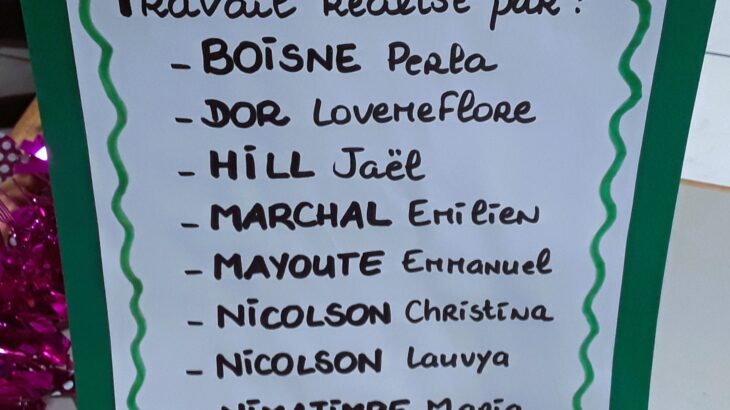 Travail réalisé par :
- BOISNE Perla
- DOR Lovemeflore
- HILL Jaël
- MARCHAL Emilien
- MAYOUTE Emmanuel
- NICOLSON Christina
- NICOLSON Lauvya